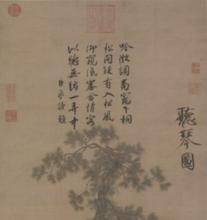 聽琴圖
吟徵調商竈下桐
松間疑有入松風
仰窺低審含情客
似聽無絃一弄中
臣京謹題